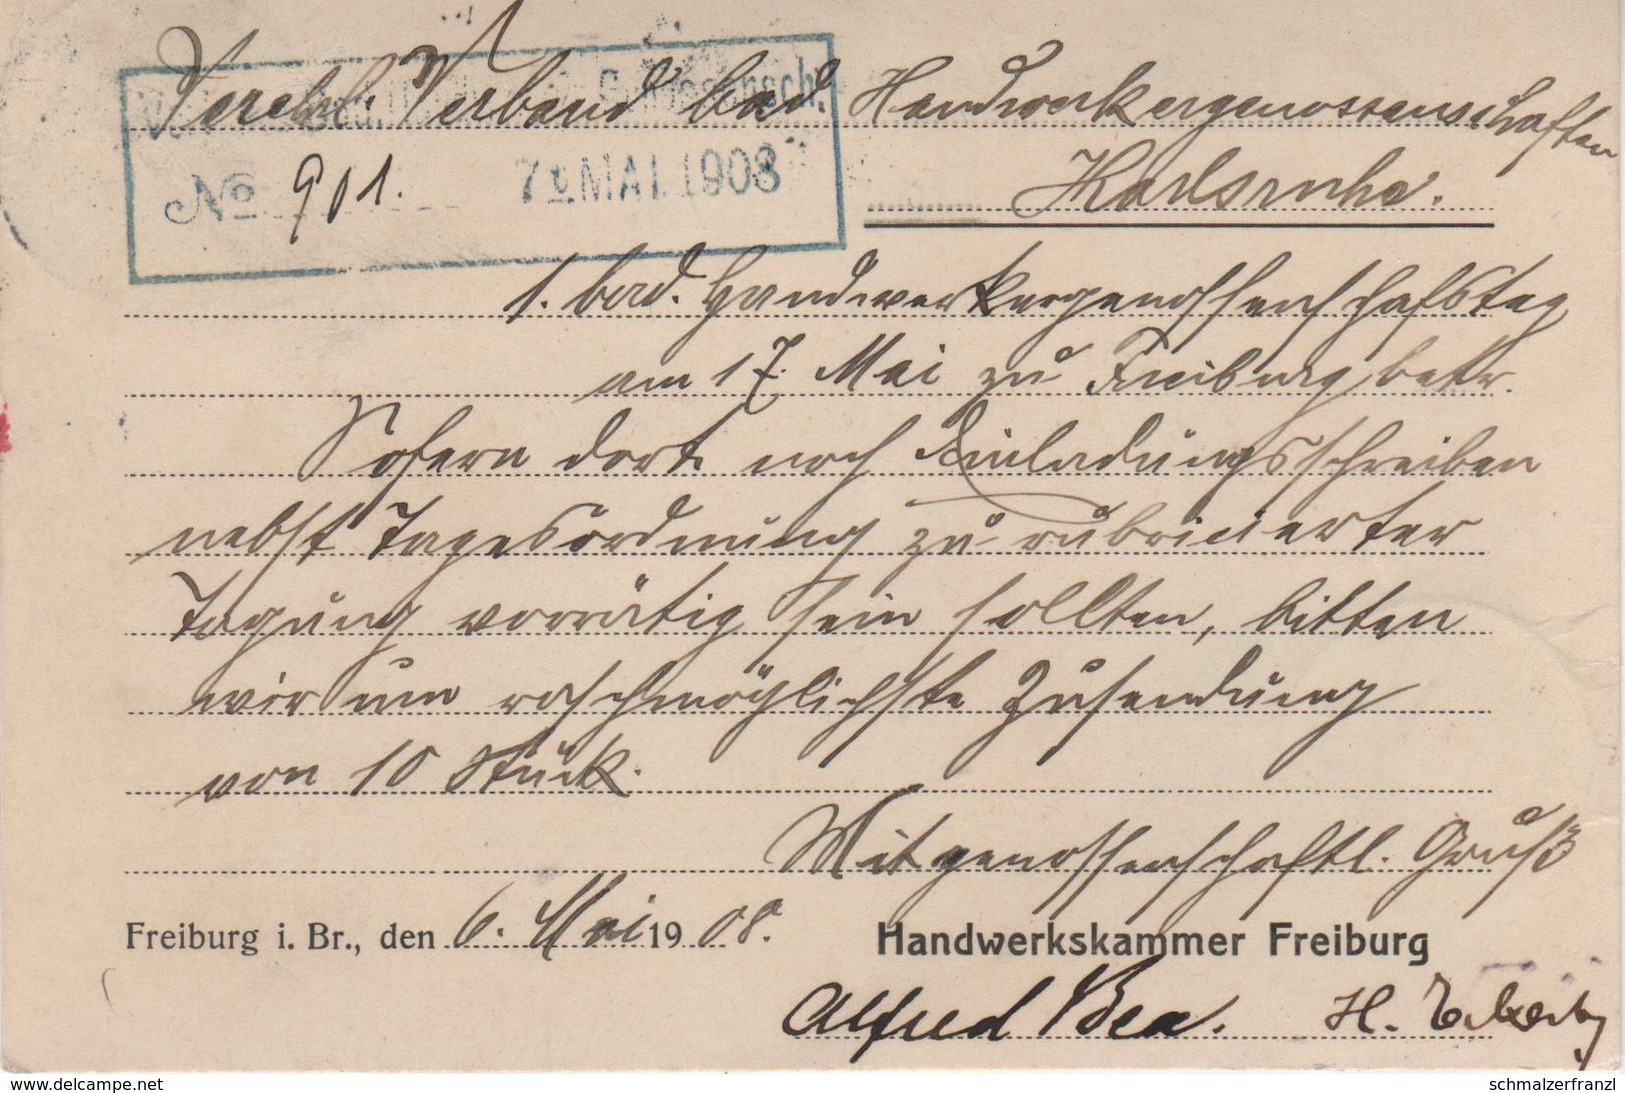 Verehrl. Verband bad. Handwerkergenossenschaften
Karlsruhe.
No 901. 7. MAI. 1908
1. bad. Handwerkergenossenschaftstag
am 17. Mai zu Freiburg betr.
Sofern dort noch Einladungsschreiben
nebst Tagesordnung zu rubricierter
Tagung vorrätig sein sollten, bitten
wir um raschmöglichste Zusendung
von 10 Stück.
Mit genossenschaftl. Gruß
Freiburg i. Br., den 6. Mai 1908.
Handwerkskammer Freiburg
Alfred Bea. H.
www.delcampe.net
schmalzerfranzl